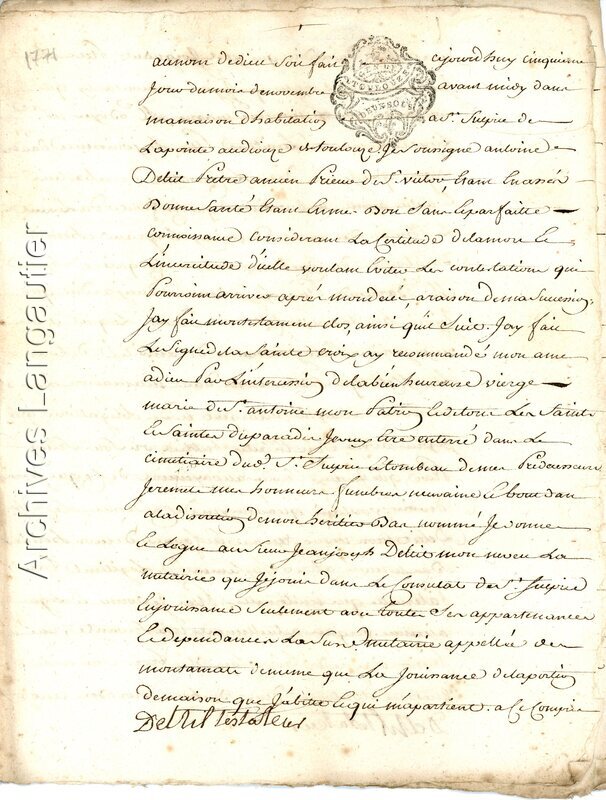 1771
au nom de dieu soit fait cejourdhuy cinquieme
Jour du mois de novembre avant midy dans
ma maison d'habitation a St. Sulpice de
Lapointe au dioceze de toulouze, Je soussigné antoine
Deltil Prêtre ancien Prieur de St. victor, Etant En assés
Bonne Santé Etant En me Bon Sens Et parfaitte
connoissance considerant La Certitude de la mort Et
L'incertitude d'icelle voulant Eviter Les contestations qui
Pourroint arriver aprés mon decés a raison de ma Succession
Jay fait mon testament clos, ainsi qu'il Suit. Jay fait
Le Signe de la Sainte croix ay recommandé mon ame
a dieu Par L'intercession de la bien heureuse vierge
marie de St. antoine mon Patron Et de tous Les Saints
Et Saintes du paradis Je veux Etre enterré dans Le
cimetiaire dud. St. Sulpice Et tombeau de mes Predecesseurs
Je remets mes honneurs funebres neuvaine Et bout dan
a la discretion de mon heritier Bas nommé Je donne
Et Legue au Sieur Jean joseph Deltil mon neveu La
metairie que Jejouis dans Le Consulat de St. Sulpice
En jouissance Seulement avec toutes Ses appartenances
Et dependances La Susd. metairie appellée des
montamats de meme que La Jouissance de la portion
de maison que J'abitte Et qui m'apartient. a Ce Compris
Deltil testateur
TOULOUZE
DEUX SOLS
Archives Langautier